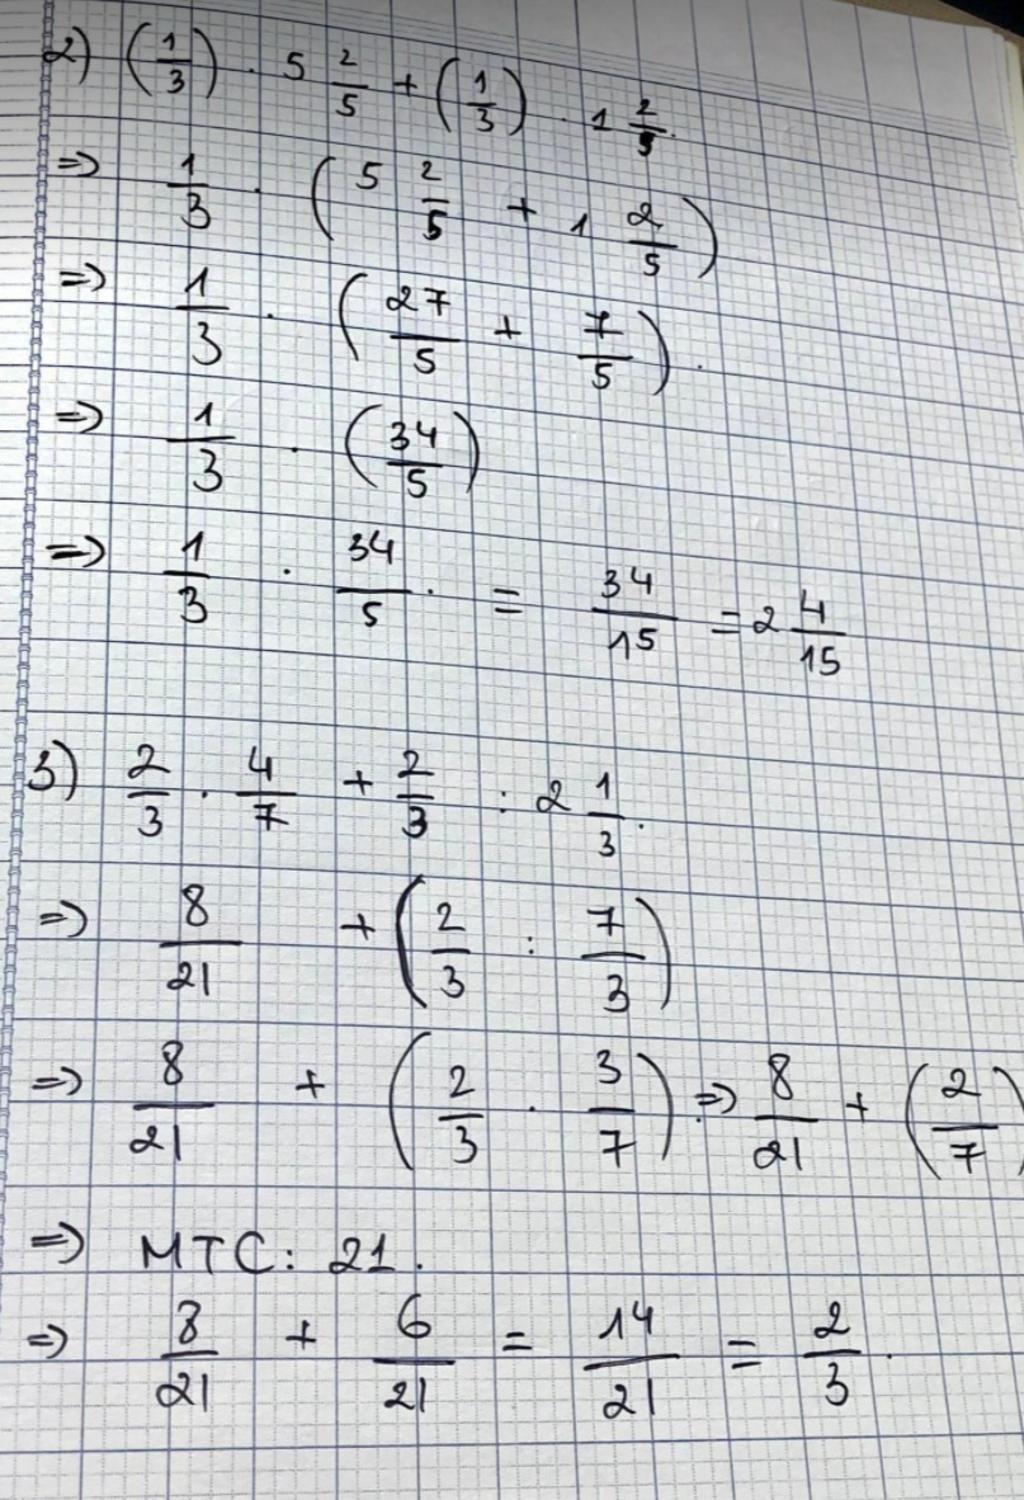 2) (1/3) . 5 2/5 + (1/3) . 1 2/5.
=> 1/3 . (5 2/5 + 1 2/5)
=> 1/3 . (27/5 + 7/5).
=> 1/3 . (34/5)
=> 1/3 . 34/5. = 34/15 = 2 4/15
3) 2/3 . 4/7 + 2/3 : 2 1/3.
=> 8/21 + (2/3 : 7/3)
=> 8/21 + (2/3 . 3/7). => 8/21 + (2/7)
=> MTC: 21.
=> 8/21 + 6/21 = 14/21 = 2/3.